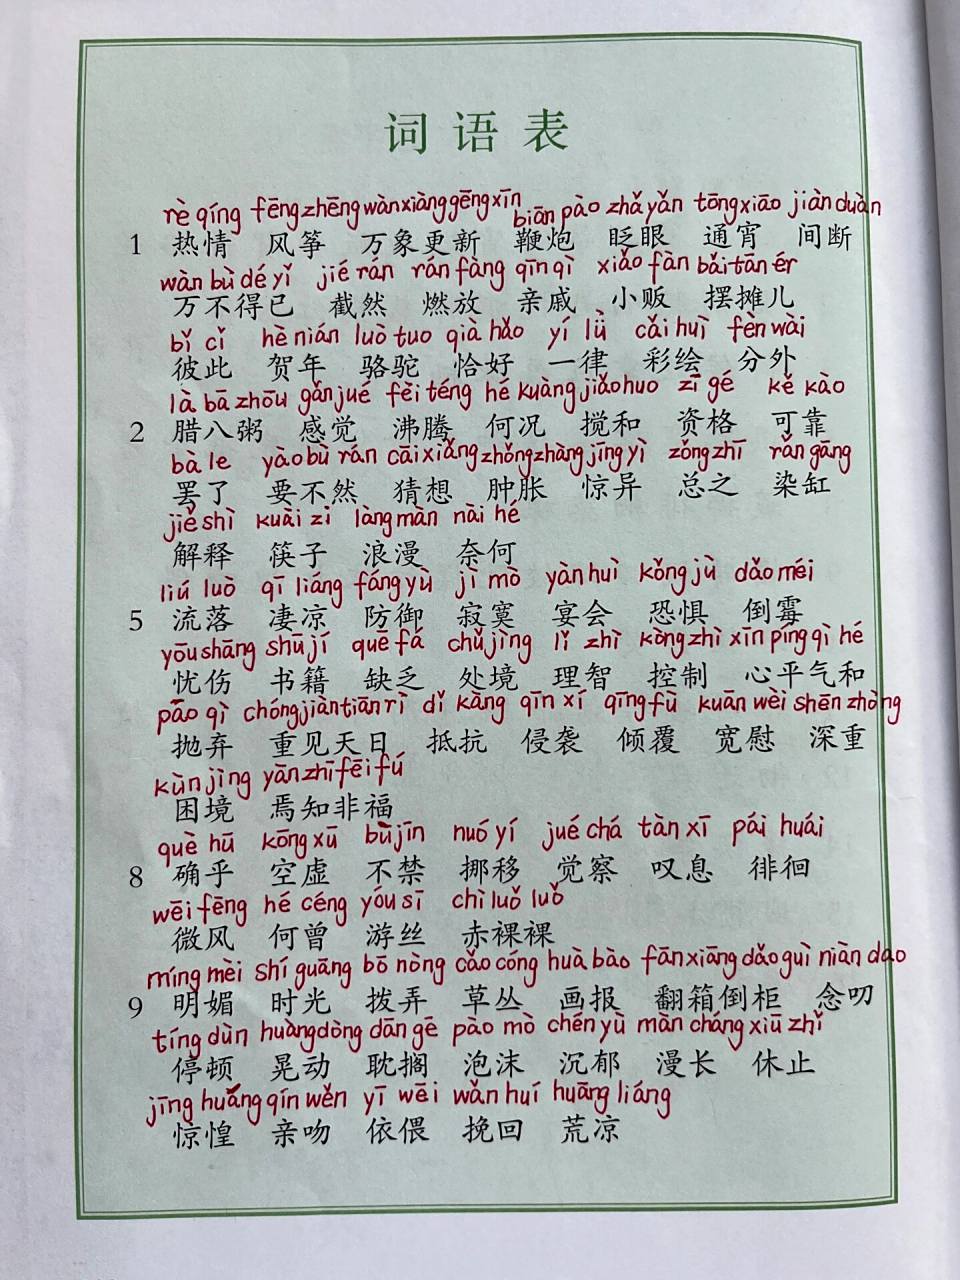 词语表
rè qíng fēng zhēng wàn xiàng gēng xīn biān pào zhǎ yǎn tōng xiāo jiàn duàn
1 热情 风筝 万象更新 鞭炮 眨眼 通宵 间断
wàn bù dé yǐ jié rán rán fàng qīn qì xiǎo fàn bǎi tān ér
万不得已 截然 燃放 亲戚 小贩 摆摊儿
bǐ cǐ hè nián luò tuo qià hǎo yí lǜ cǎi huì fèn wài
彼此 贺年 骆驼 恰好 一律 彩绘 分外
là bā zhōu gǎn jué fèi téng hé kuàng jiǎo huo zī gé kě kào
2 腊八粥 感觉 沸腾 何况 搅和 资格 可靠
bà le yào bù rán cāi xiǎng zhǒng zhàng jīng yì zǒng zhī rǎn gāng
罢了 要不然 猜想 肿胀 惊异 总之 染缸
jiě shì kuài zi làng màn nài hé
解释 筷子 浪漫 奈何
liú luò qī liáng fáng yù jì mò yàn huì kǒng jù dǎo méi
5 流落 凄凉 防御 寂寞 宴会 恐惧 倒霉
yōu shāng shū jí quē fá chǔ jìng lǐ zhì kòng zhì xīn píng qì hé
忧伤 书籍 缺乏 处境 理智 控制 心平气和
pāo qì chóng jiàn tiān rì dǐ kàng qīn xí qīng fù kuān wèi shēn zhòng
抛弃 重见天日 抵抗 侵袭 倾覆 宽慰 深重
kùn jìng yān zhī fēi fú
困境 焉知非福
què hū kōng xū bù jīn nuó yí jué chá tàn xī pái huái
8 确乎 空虚 不禁 挪移 觉察 叹息 徘徊
wēi fēng hé céng yóu sī chì luǒ luǒ
微风 何曾 游丝 赤裸裸
míng mèi shí guāng bō nòng cǎo cóng huà bào fān xiāng dǎo guì niàn dao
9 明媚 时光 拨弄 草丛 画报 翻箱倒柜 念叨
tíng dùn huàng dòng dān gē pào mò chén yù màn cháng xiū zhǐ
停顿 晃动 耽搁 泡沫 沉郁 漫长 休止
jīng huáng qīn wěn yī wēi wǎn huí huāng liáng
惊惶 亲吻 依偎 挽回 荒凉